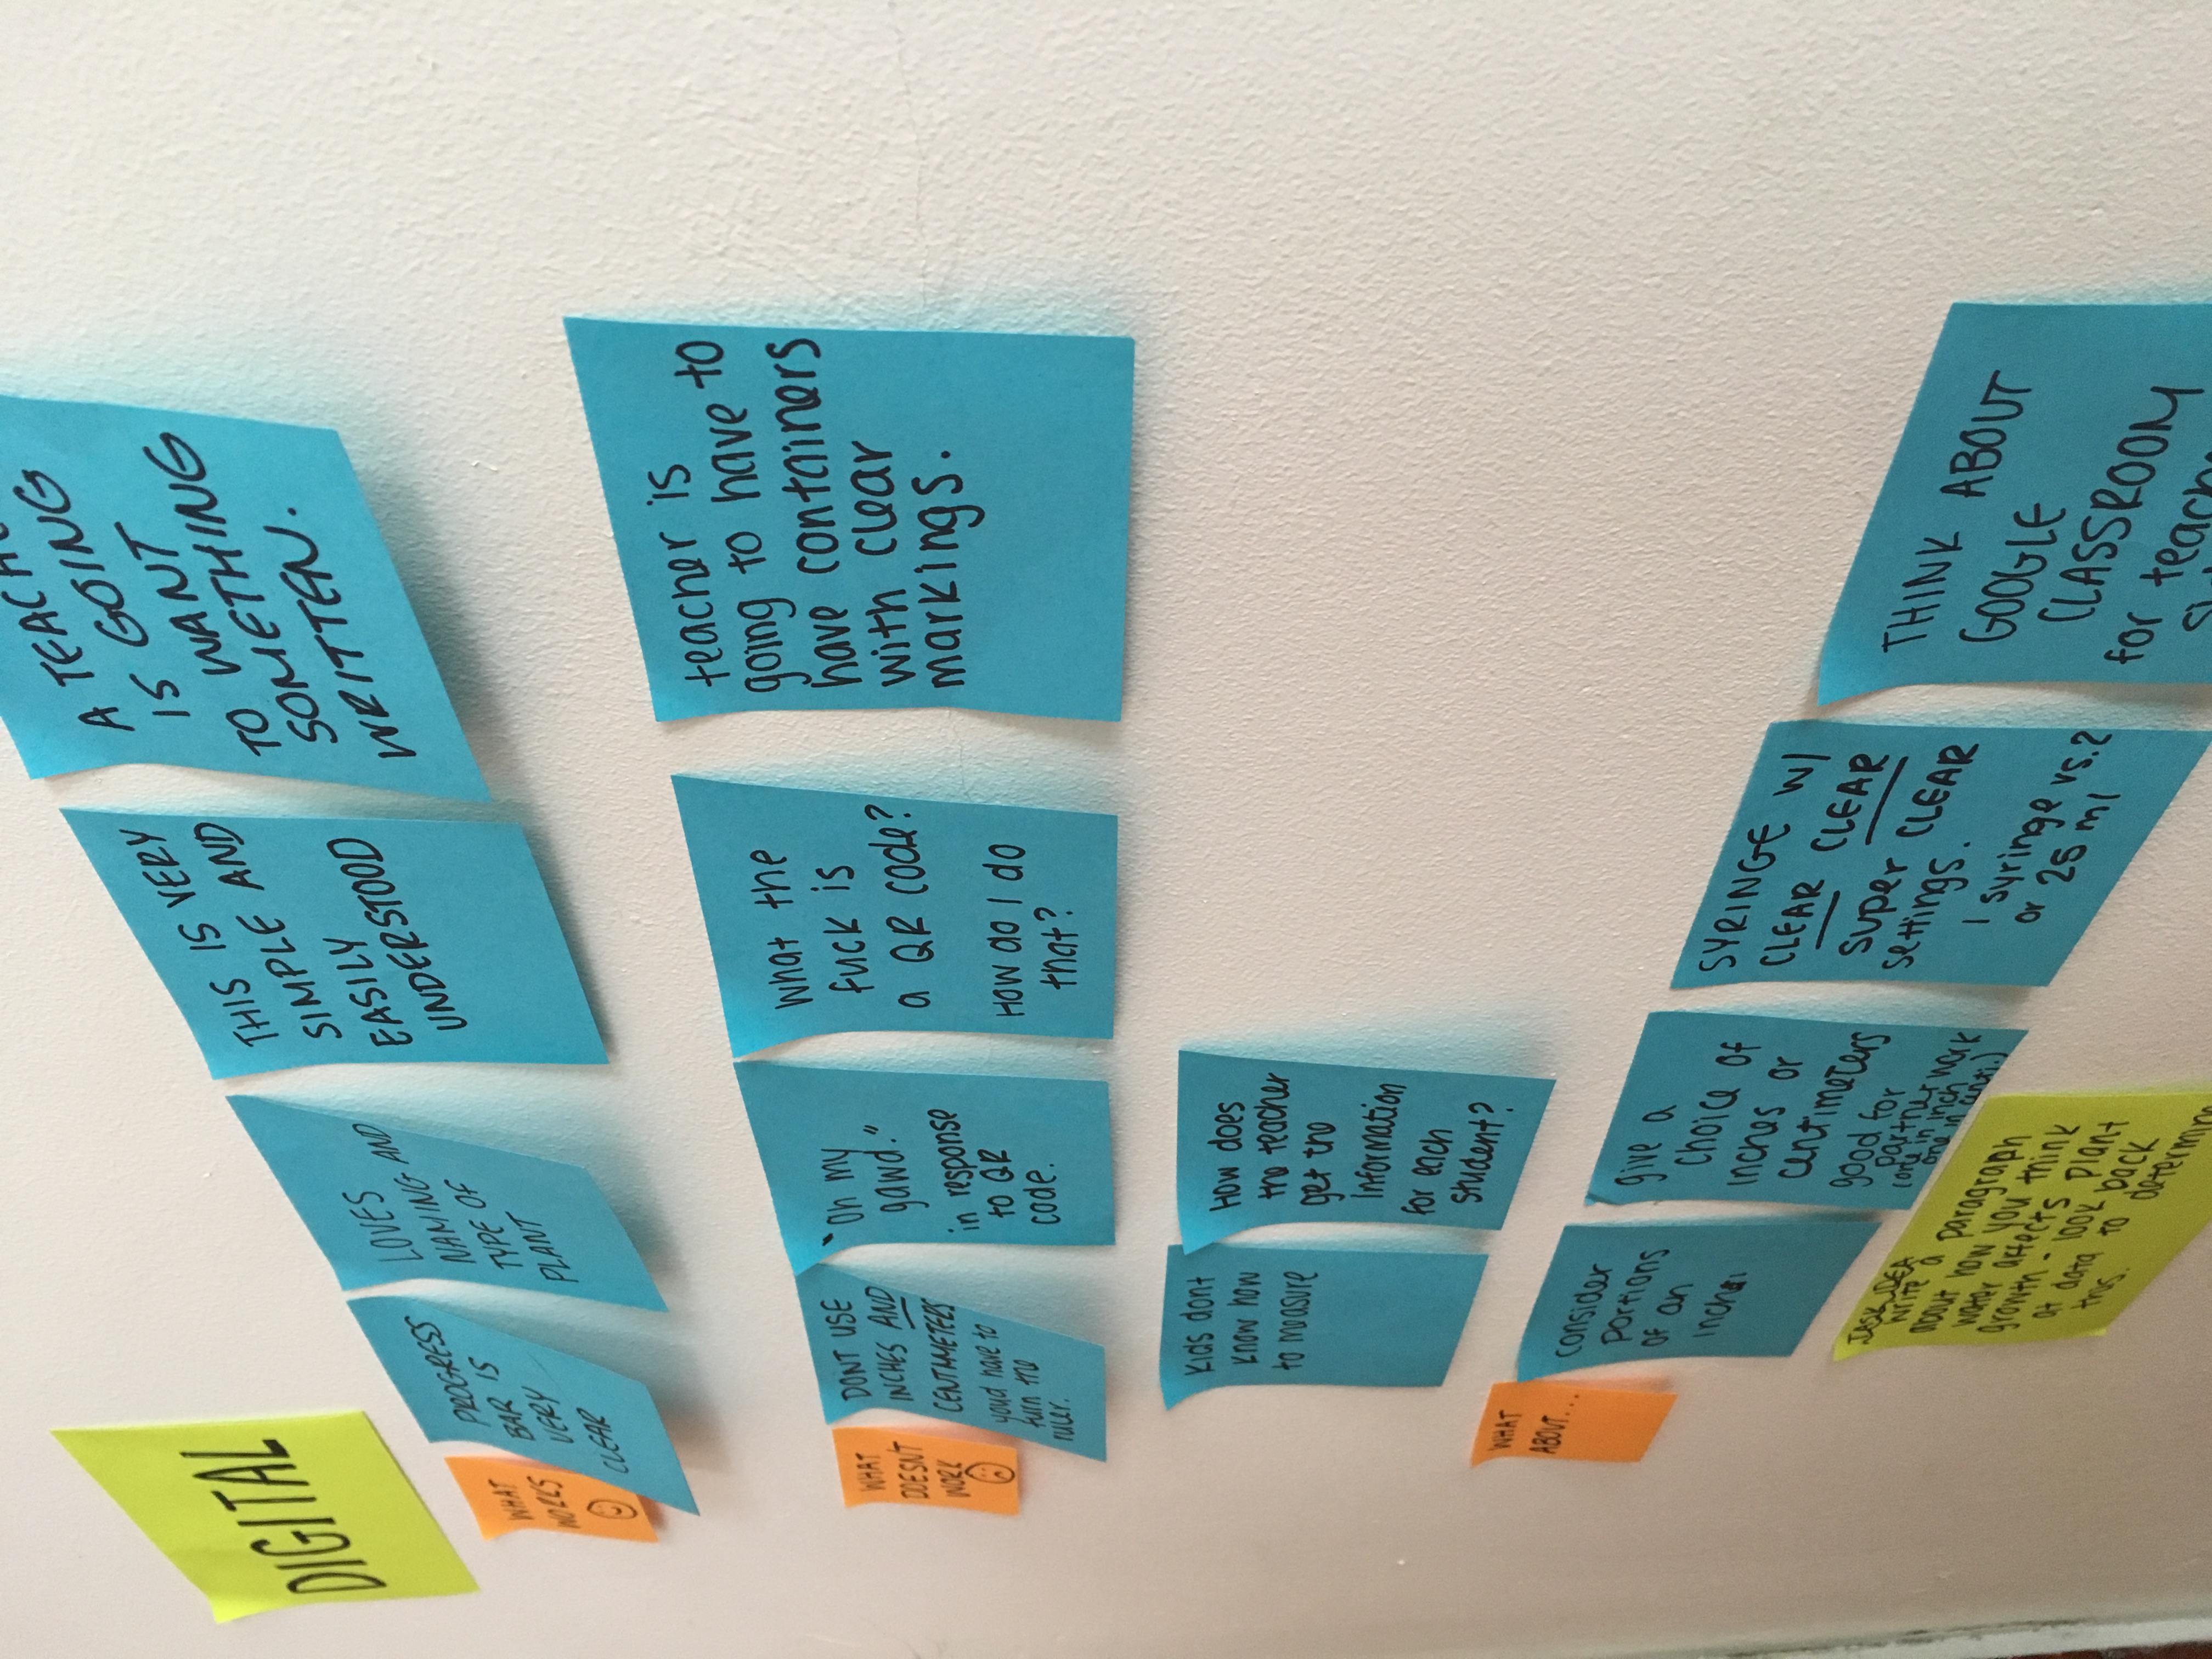 DIGITAL
WHAT
WORKS
PROGRESS
BAR IS
VERY
CLEAR
LOVES
NAMING AND
TYPE OF
PLANT
THIS IS VERY
SIMPLE AND
EASILY
UNDERSTOOD
A
IS GOING
TO WANT
SOMETHING
WRITTEN.
WHAT
DOESN'T
WORK
DONT USE
INCHES AND
CENTIMETERS
youd have to
turn the
ruler.
"Oh my
gawd."
in response
to QR
code.
What the
fuck is
a QR code?
How do I do
that?
teacher is
going to have to
have containers
with clear
markings.
Kids dont
know how
to measure
How does
the teacher
get the
Information
for each
student?
WHAT
ABOUT...
consider
portions
of an
give a
choice of
inches or
centimeters
good for
partner work
(one in inch
one in centi.)
SYRINGE W/
CLEAR CLEAR
super CLEAR
settings.
1 syringe vs. 2
or 25 ml
THINK ABOUT
GOOGLE
CLASSROOM
for
TASK IDEA
write a paragraph
about how you think
water affects plant
growth - look back
at data to
this.